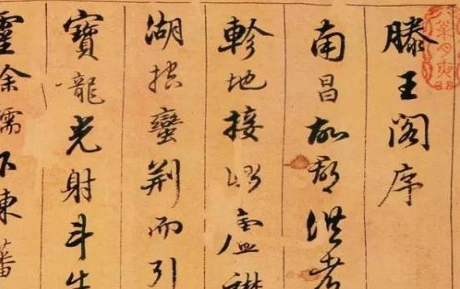 滕王阁序
南昌故郡洪都
軫地接衡廬襟
湖控蠻荊而引
寶龍光射斗牛
靈徐孺下陳蕃